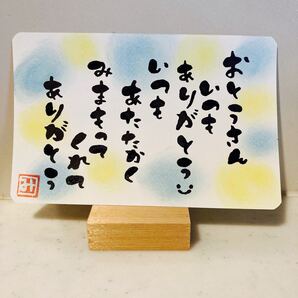 おとうさん
いつも
ありがとう
いつも
あたたかく
みまもって
くれて
ありがとう
み